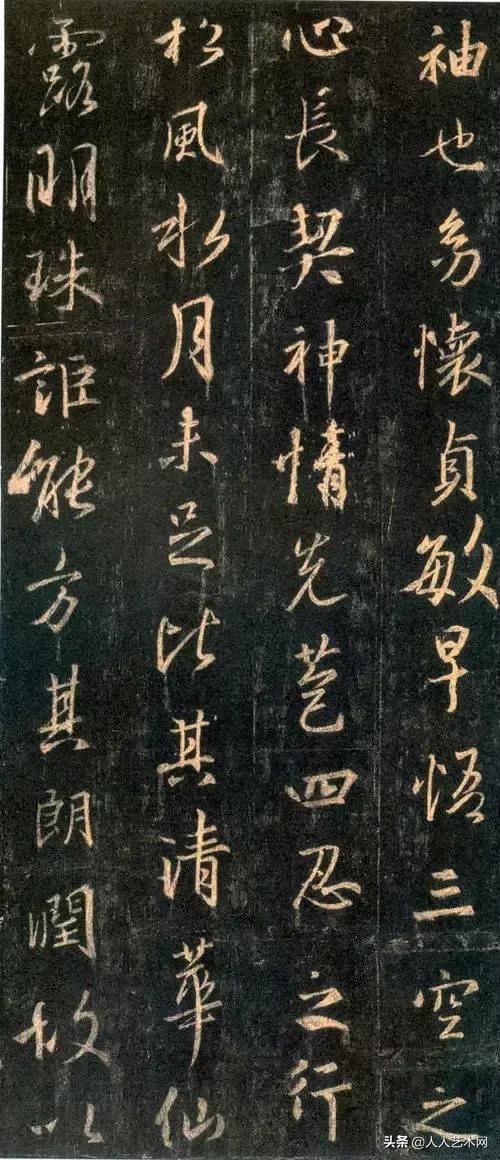 袖也幼懷貞敏早悟三空之
心長契神情先苞四忍之行
松風水月未足比其清華仙
露明珠詎能方其朗潤故以
头条 @人人艺术网